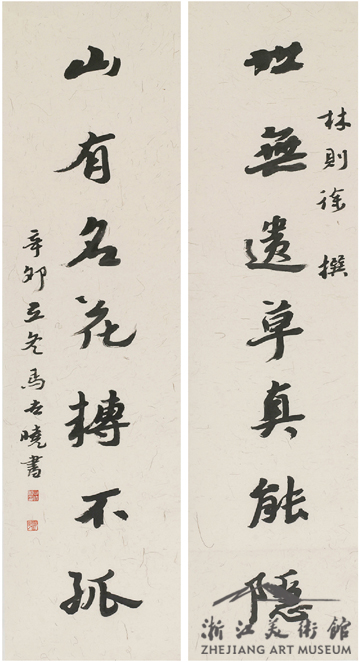 林則徐 撰
世無遺草真能隱
山有名花轉不孤
辛卯立冬馬世曉書
浙江美術館
ZHEJIANG ART MUSEUM